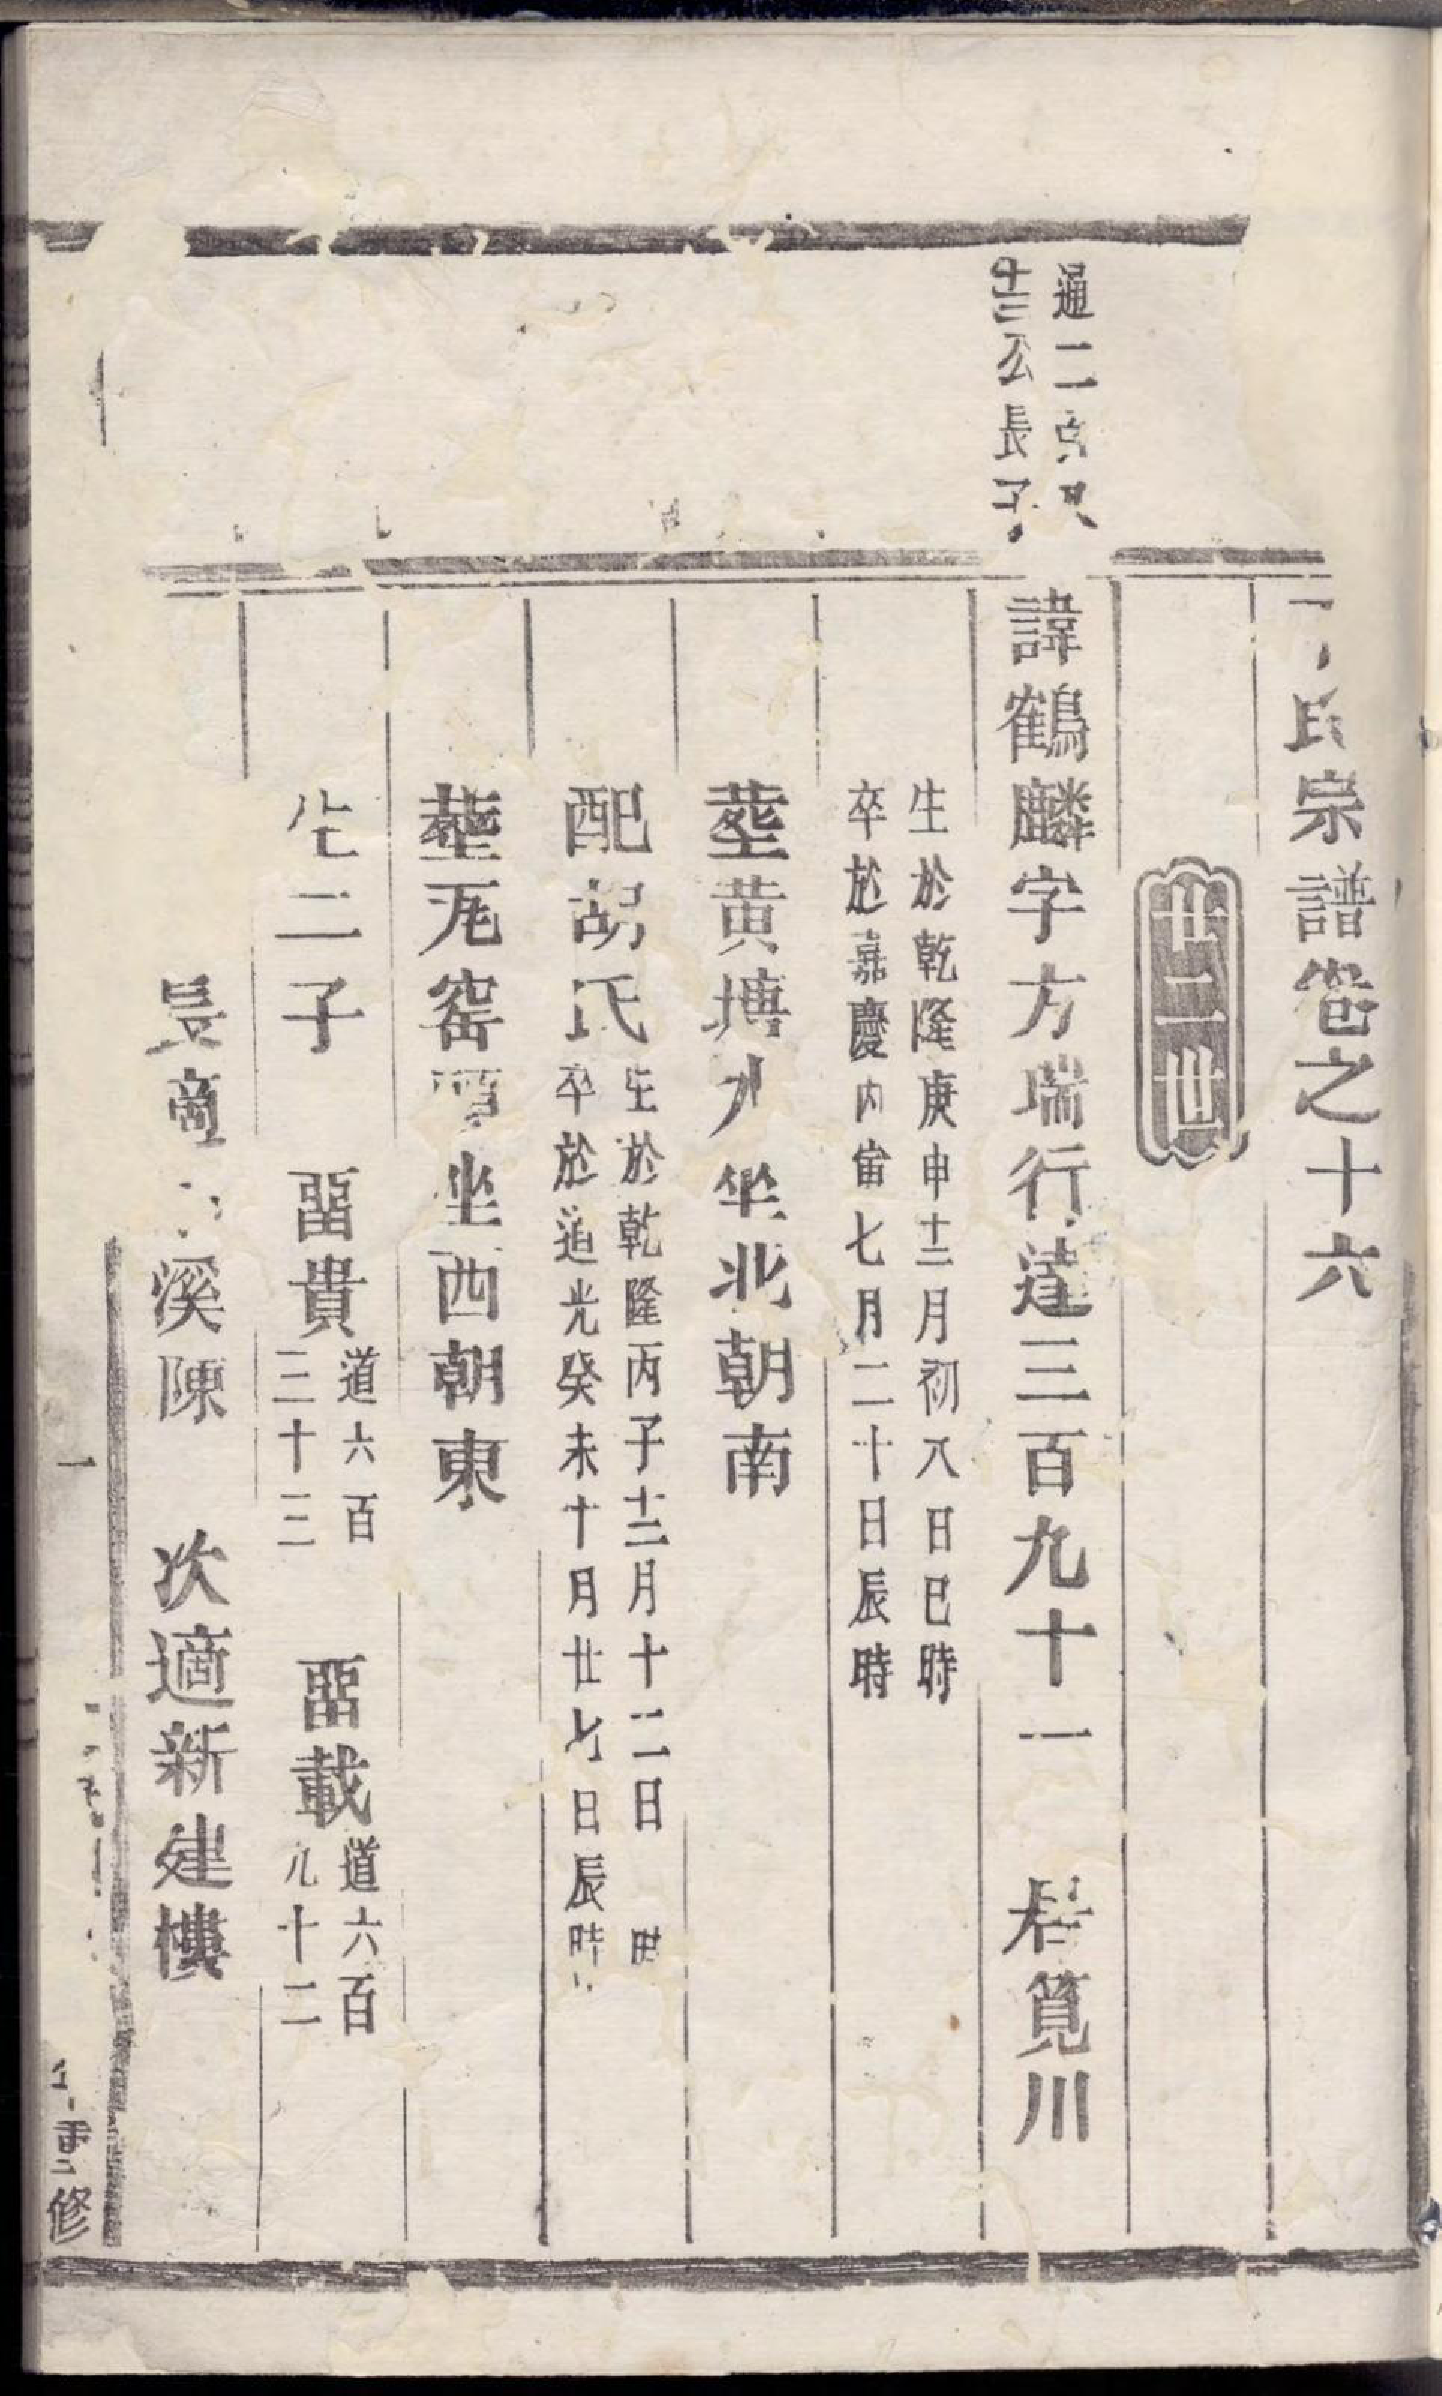 氏宗譜卷之十六
廿二世
通二
十三公長子
諱鶴麟字方瑞行達三百九十一 居筧川
生於乾隆庚申十二月初八日巳時
卒於嘉慶丙寅七月二十日辰時
塟黄塼 坐北朝南
配胡氏
生於乾隆丙子十二月十二日 時
卒於道光癸未十月廿七日辰時
塟瓦窑 坐西朝東
生二子 畱貴
道六百
三十三
畱載
道六百
九十二
長適 溪陳 次適新建樓
一
重修